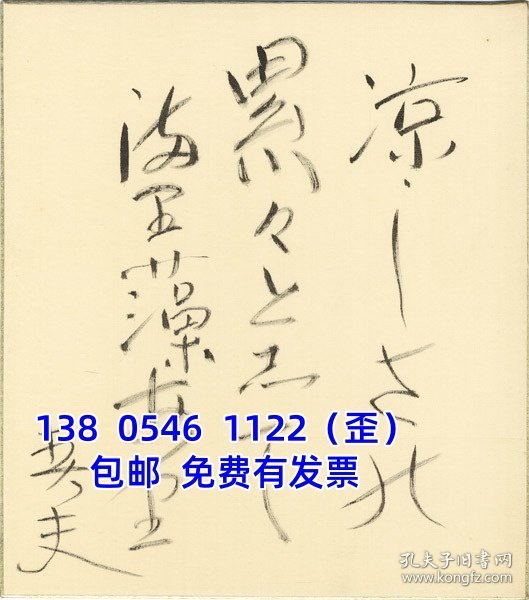 涼しさの
累々として
満里藻安里
夫
138 0546 1122（歪）
包邮 免费有发票
孔夫子旧书网
www.kongfz.com